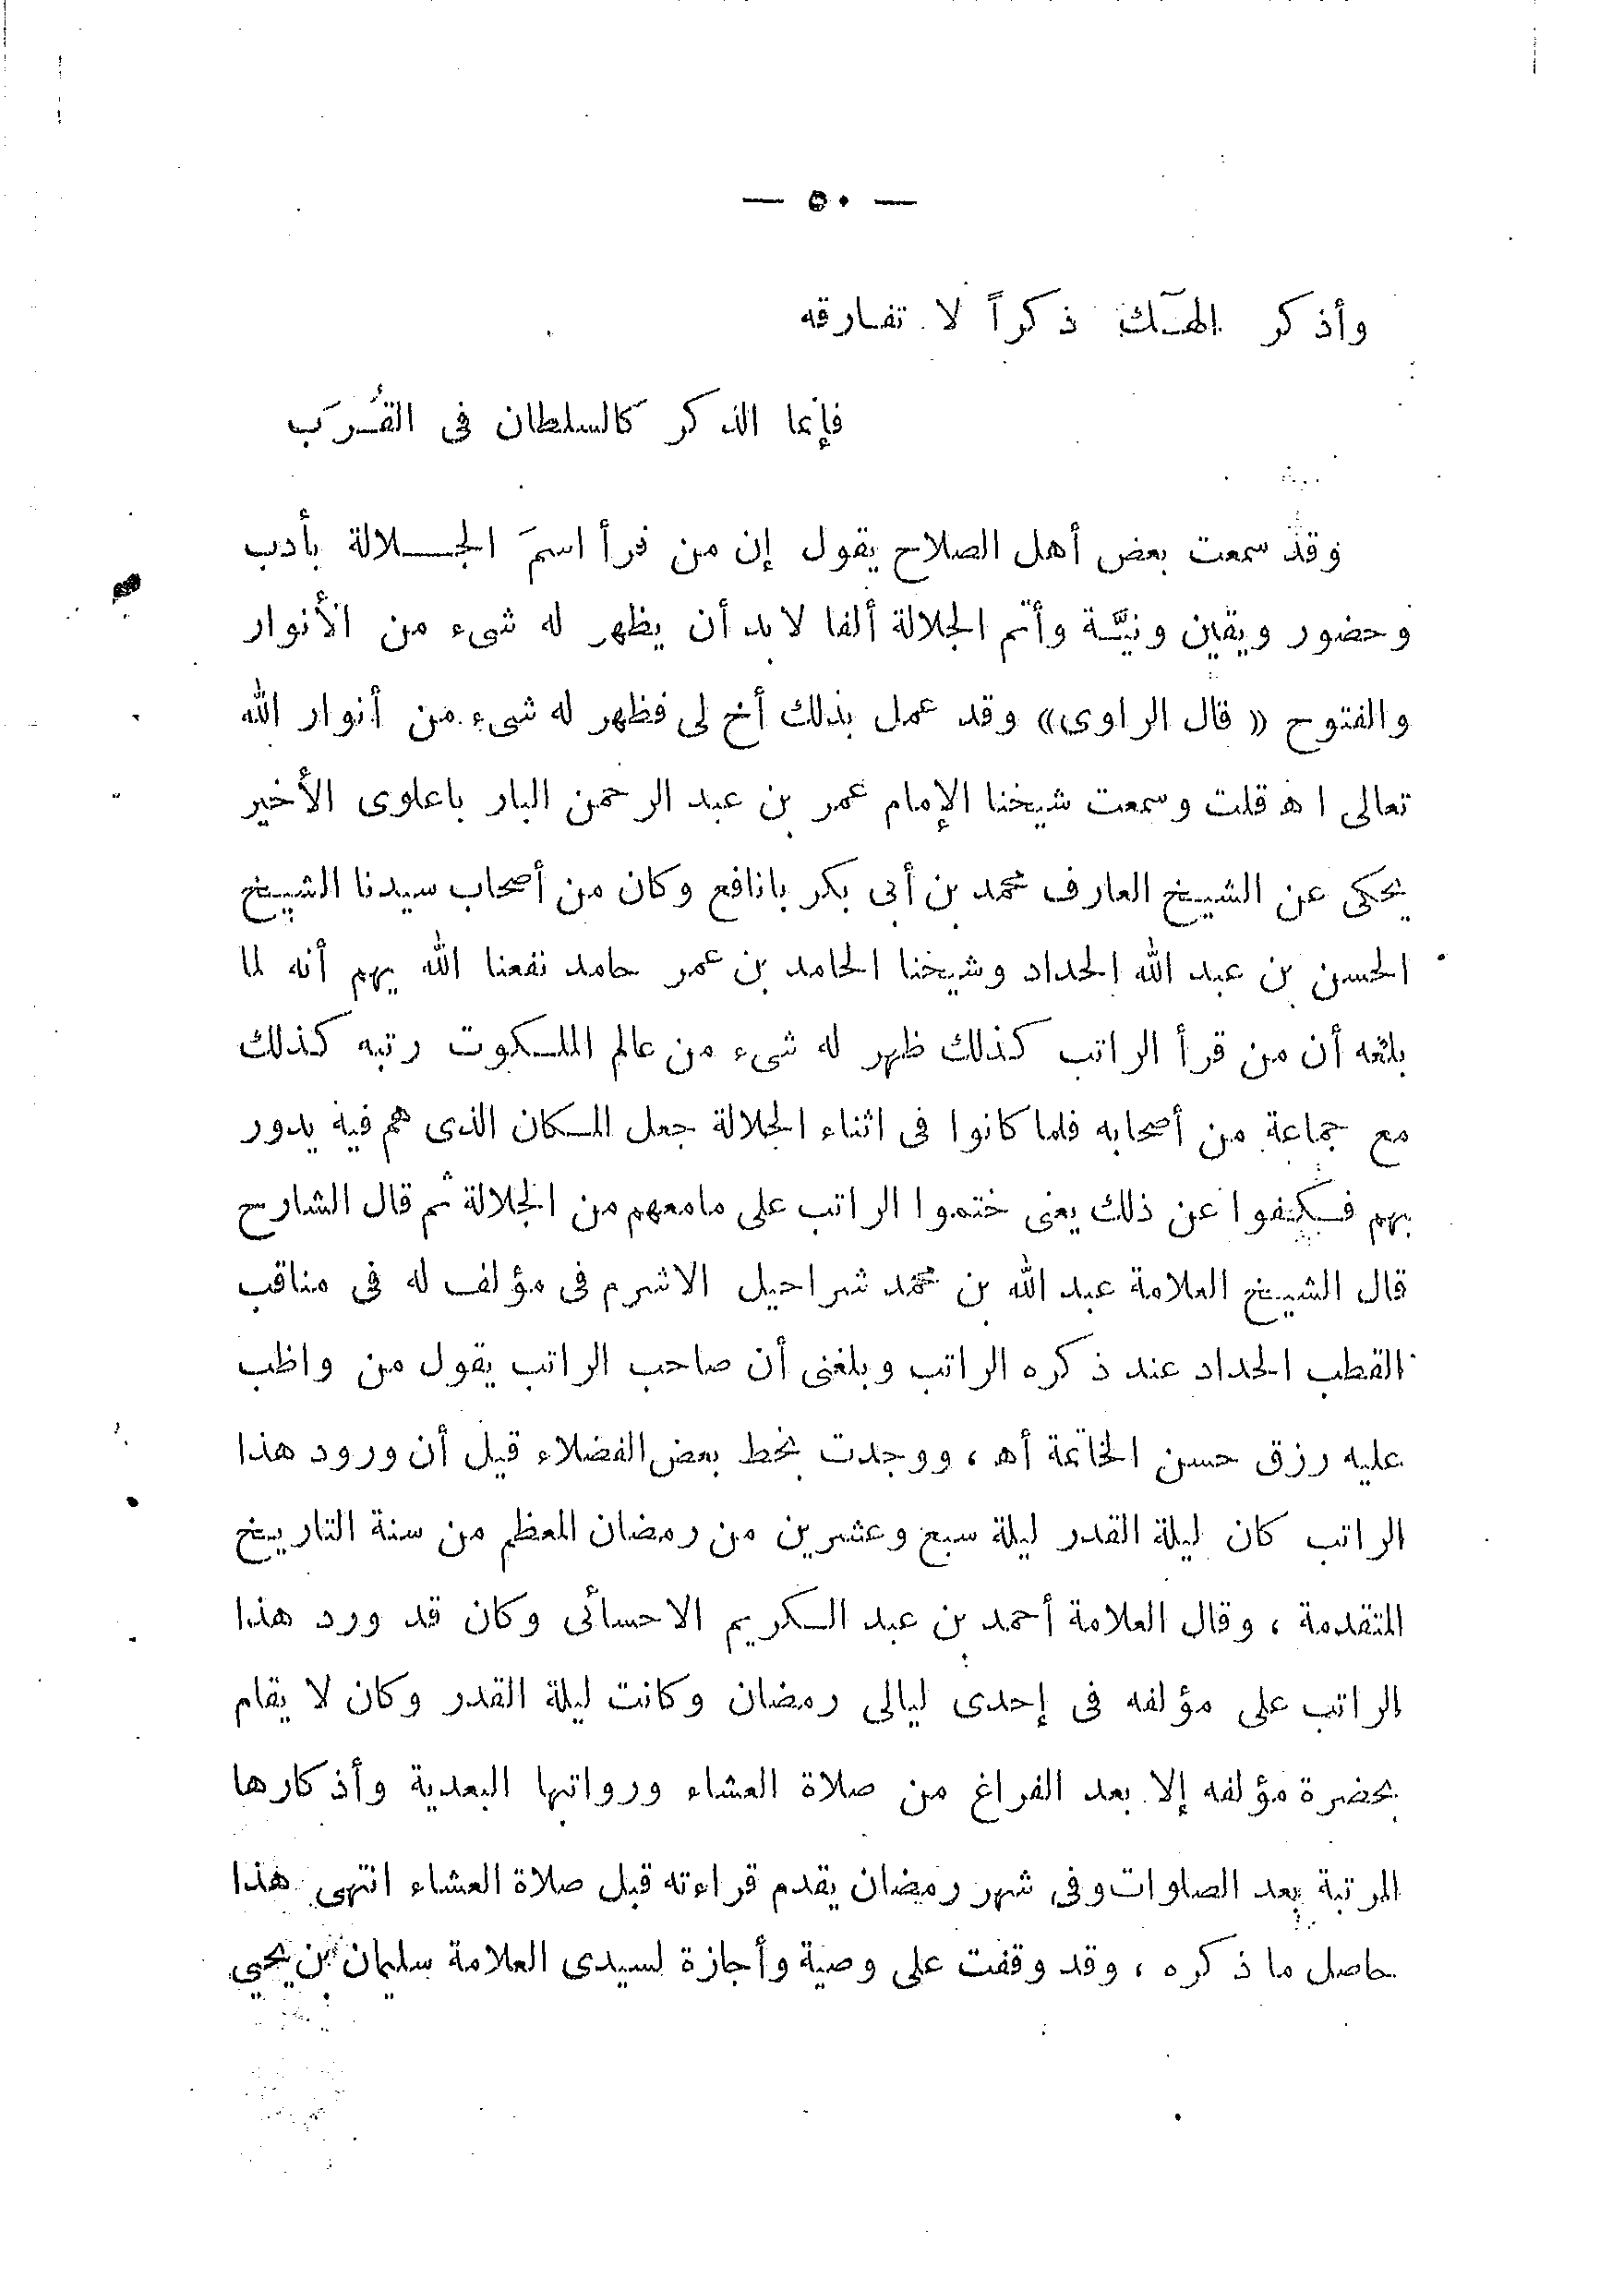 — ٥٠ —
وأذكر إلهـٓك ذكراً لا تفـارقه
فإنما الذكر كالسلطان فى القُـرَب
وقد سمعت بعض أهل الصلاح يقول إن من قرأ اسمَ الجـــلالة بأدب
وحضور ويقين ونيَّـة وأتم الجلالة ألفا لابد أن يظهر له شىء من الأنوار
والفتوح « قال الراوى» وقد عمل بذلك أخ لى فظهر له شىء من أنوار الله
تعالى اهـ قلت وسمعت شيخنا الإمام عمر بن عبد الرحمن البار باعلوى الأخير
يحكى عن الشيخ العارف محمد بن أبى بكر بانافع وكان من أصحاب سيدنا الشيخ
الحسن بن عبد الله الحداد وشيخنا الحامد بن عمر حامد نفعنا الله بهم أنه لما
بلغه أن من قرأ الراتب كذلك ظهر له شىء من عالم الملكوت رتبه كذلك
مع جماعة من أصحابه فلما كانوا فى اثناء الجلالة جعل المكان الذى هم فيه يدور
بهم فكفوا عن ذلك يعنى ختموا الراتب على مامعهم من الجلالة ثم قال الشارح
قال الشيخ العلامة عبد الله بن محمد شراحيل الاشرم فى مؤلف له فى مناقب
القطب الحداد عند ذكره الراتب وبلغنى أن صاحب الراتب يقول من واظب
عليه رزق حسن الخاتمة أهـ ، ووجدت بخط بعض الفضلاء قيل أن ورود هذا
الراتب كان ليلة القدر ليلة سبع وعشرين من رمضان المعظم من سنة التاريخ
المتقدمة ، وقال العلامة أحمد بن عبد الكريم الاحسائى وكان قد ورد هذا
الراتب على مؤلفه فى إحدى ليالى رمضان وكانت ليلة القدر وكان لا يقام
بحضرة مؤلفه إلا بعد الفراغ من صلاة العشاء ورواتبها البعدية وأذكارها
المرتبة بعد الصلوات وفى شهر رمضان يقدم قراءته قبل صلاة العشاء انتهى هذا
حاصل ما ذكره ، وقد وقفت على وصية وأجازة لسيدى العلامة سليمان بن يحيى